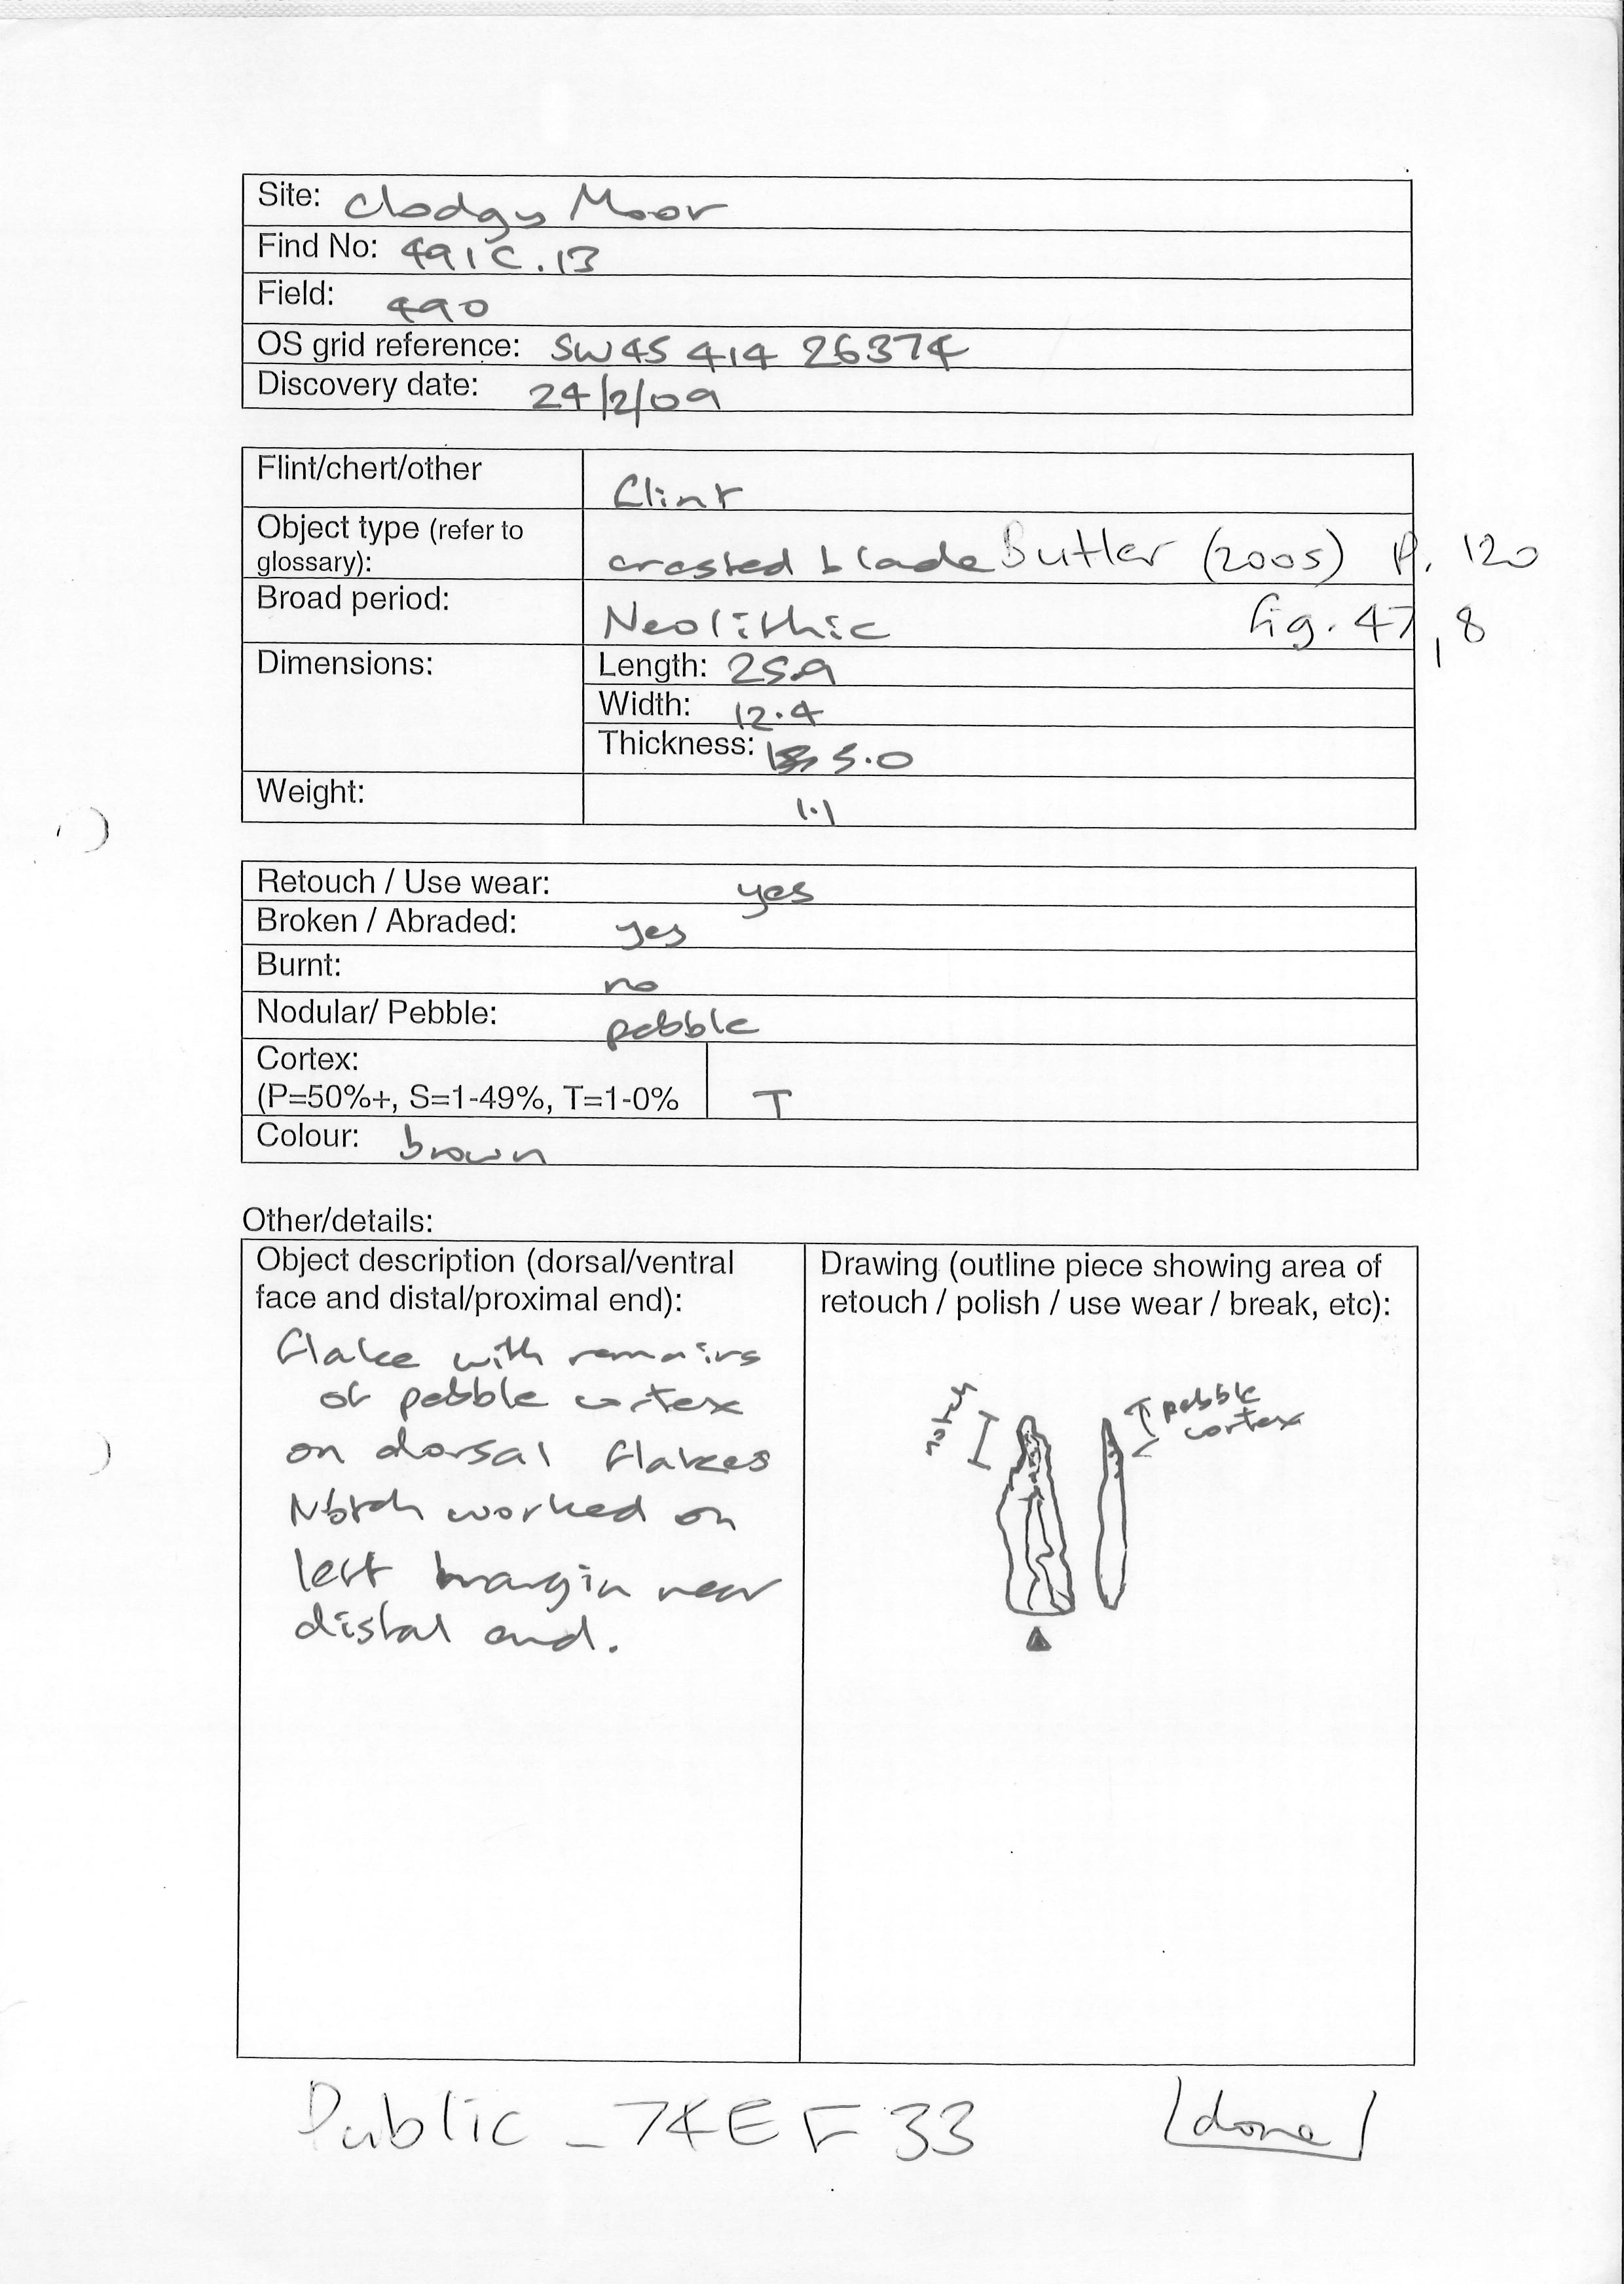 Site: Clodgy Moor
Find No: 491C.13
Field: 490
OS grid reference: SW45 414 26374
Discovery date: 24/2/09
Flint/chert/other flint
Object type (refer to
glossary): crested blade Butler (2005) p. 120
Broad period: Neolithic fig. 47, 8
Dimensions: Length: 25.9
Width: 12.4
Thickness: 5.0
Weight: 1.1
Retouch / Use wear: yes
Broken / Abraded: yes
Burnt: no
Nodular/ Pebble: pebble
Cortex:
(P=50%+, S=1-49%, T=1-0% T
Colour: brown
Other/details:
Object description (dorsal/ventral
face and distal/proximal end):
flake with remains
of pebble cortex
on dorsal flakes
Notch worked on
left margin near
distal end.
Drawing (outline piece showing area of
retouch / polish / use wear / break, etc):
notch
pebble
cortex
Public _ 74EF33 done